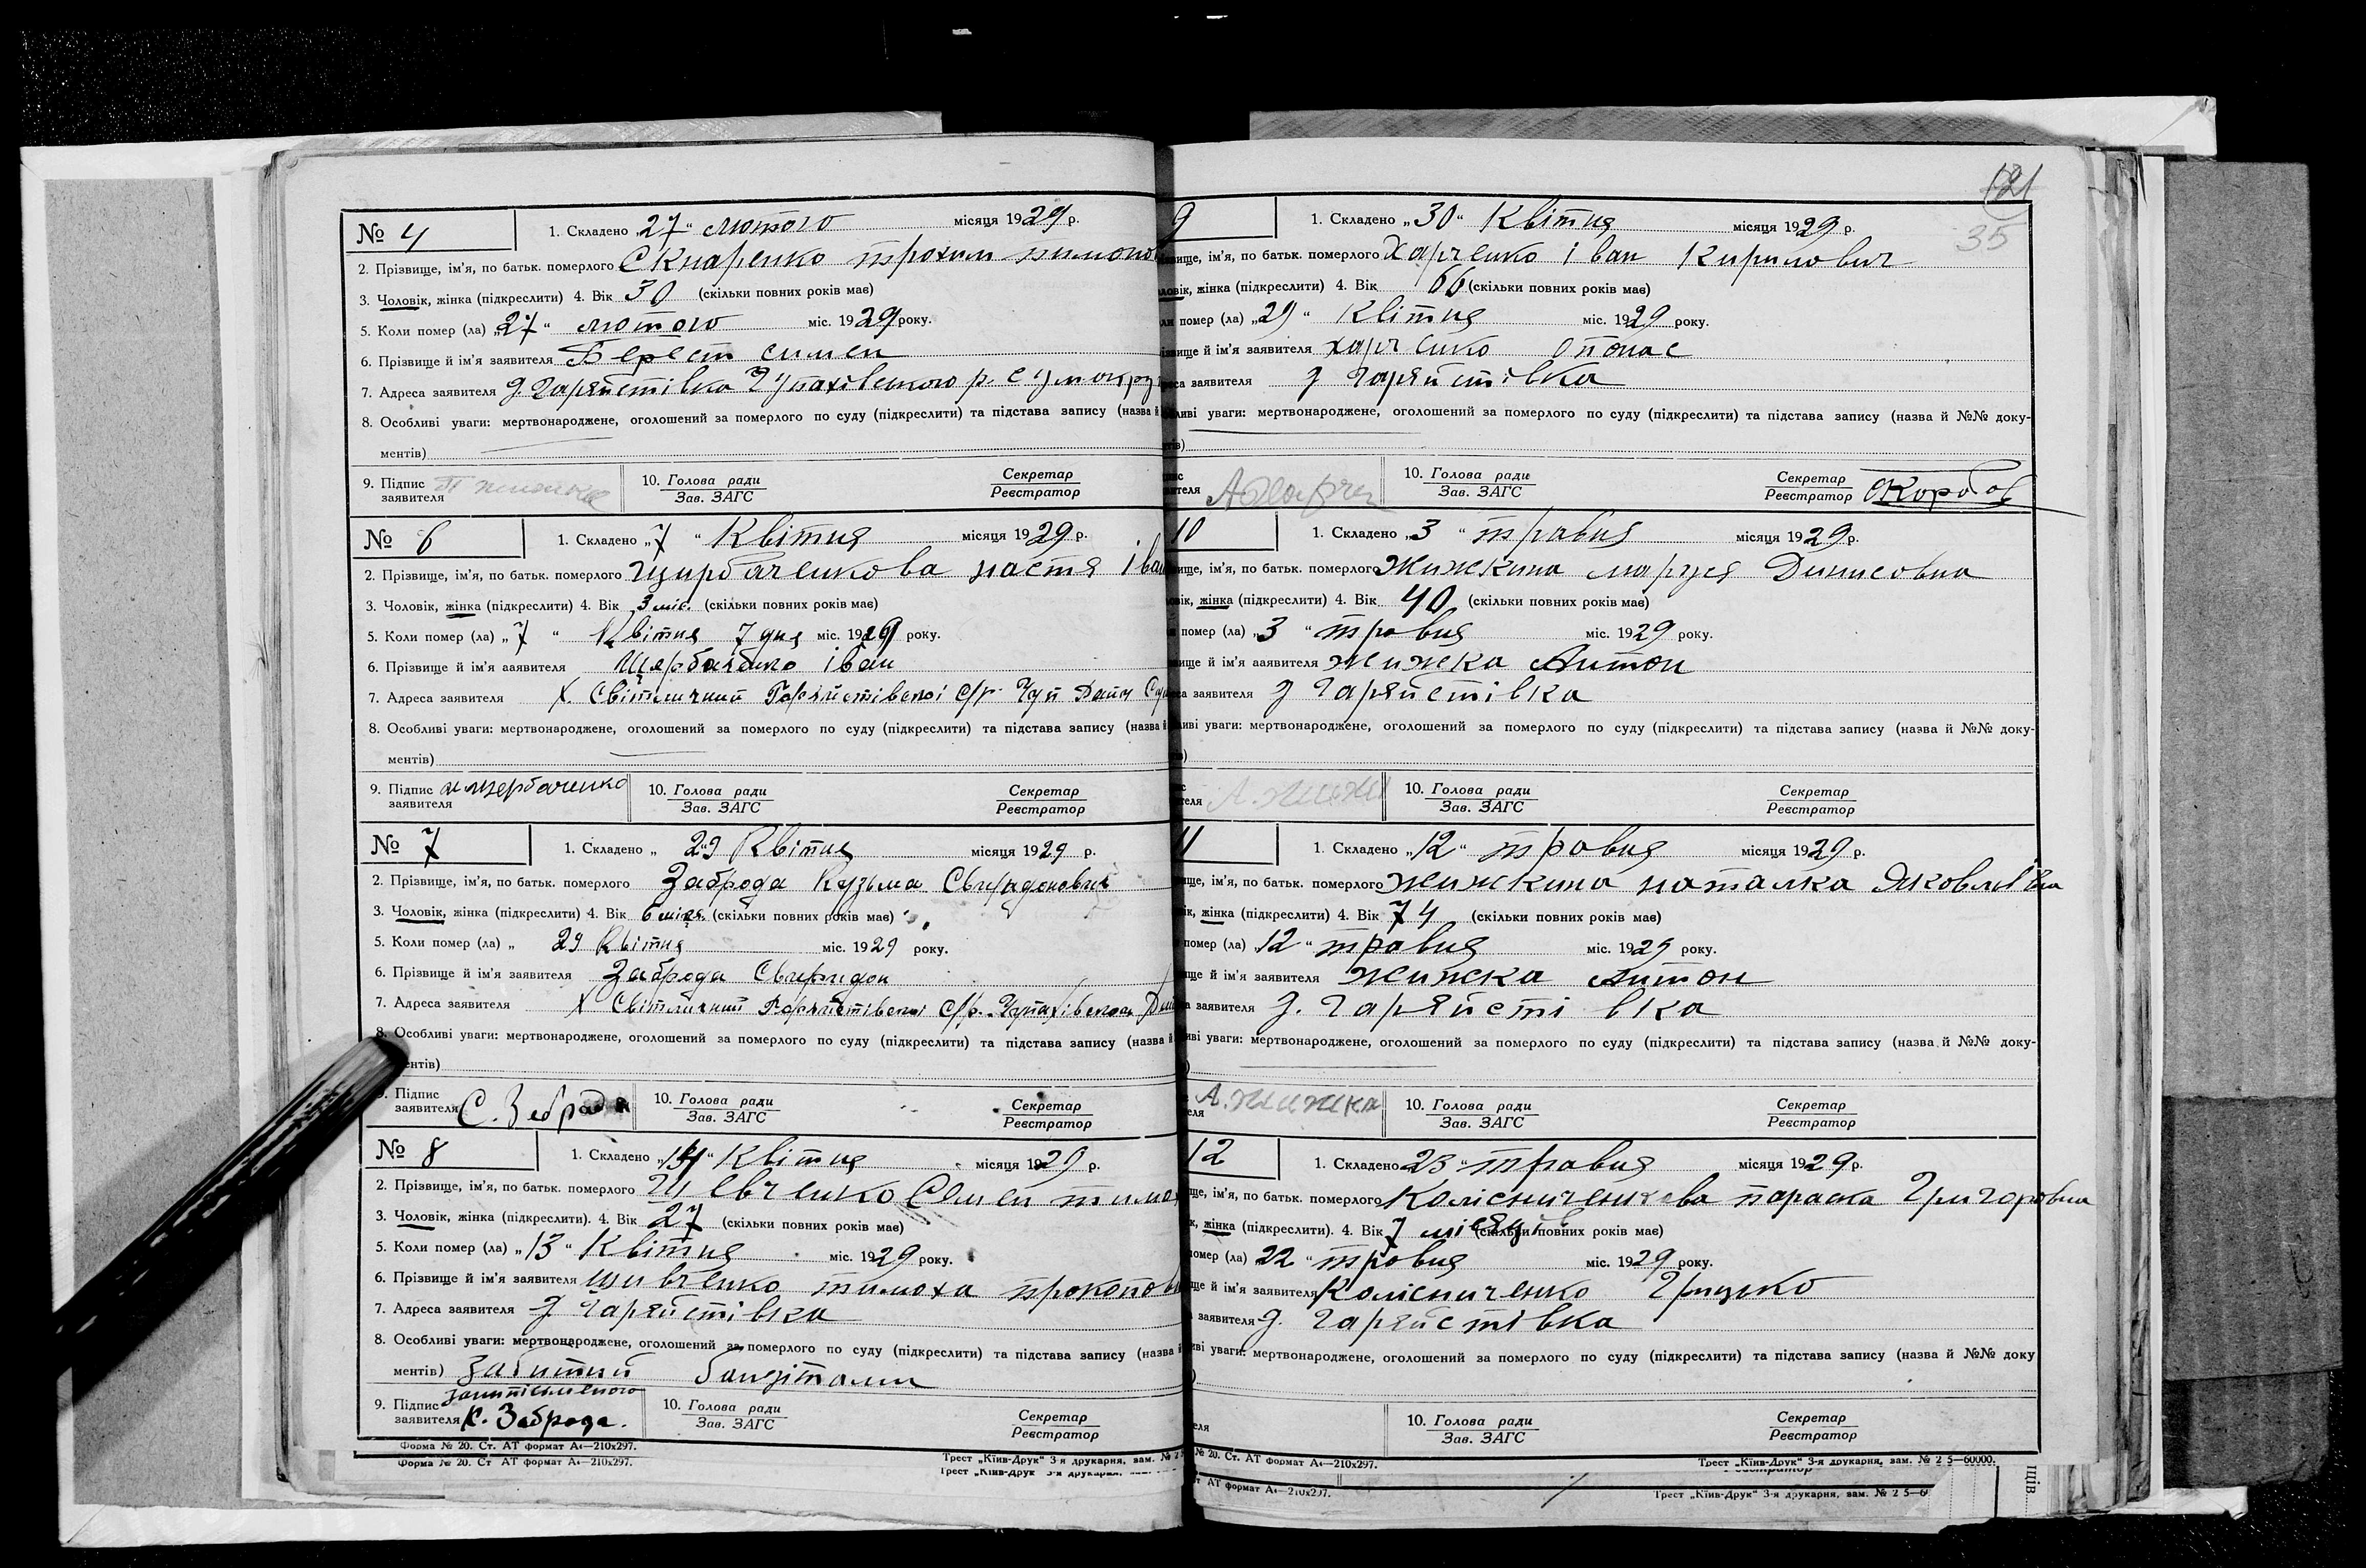 121
35
№ 4 1. Складено „27“ лютого місяця 1929 р.
2. Прізвище, ім'я, по батьк. померлого Скнаренко трохим
3. Чоловік, жінка (підкреслити) 4. Вік 30 (скільки повних років має)
5. Коли помер (ла) „27“ лютого міс. 1929 року.
6. Прізвище й ім'я заявителя Берест симен
7. Адреса заявителя д. Гаряйстівка Чупахівського р.
8. Особливі уваги: мертвонароджене, оголошений за померлого по суду (підкреслити) та підстава запису (назва й
ментів)
9. Підпис заявителя 10. Голова ради Зав. ЗАГС Секретар Реєстратор
№ 6 1. Складено „7“ Квітня місяця 1929 р.
2. Прізвище, ім'я, по батьк. померлого настя Іван
3. Чоловік, жінка (підкреслити) 4. Вік 3 міс. (скільки повних років має)
5. Коли помер (ла) „7“ Квітня 7 дня міс. 1929 року.
6. Прізвище й ім'я заявителя Щербаченко іван
7. Адреса заявителя Х. Світличний Гаряйстівської С/р.
8. Особливі уваги: мертвонароджене, оголошений за померлого по суду (підкреслити) та підстава запису (назва й
ментів)
9. Підпис заявителя 10. Голова ради Зав. ЗАГС Секретар Реєстратор
№ 7 1. Складено „29 Квітня місяця 1929 р.
2. Прізвище, ім'я, по батьк. померлого Заброда Кузьма Свиридонович
3. Чоловік, жінка (підкреслити) 4. Вік 6 міся. (скільки повних років має)
5. Коли помер (ла) „ 29 Квітня міс. 1929 року.
6. Прізвище й ім'я заявителя Заброда Свиридон
7. Адреса заявителя Х Світличний Гаряйстівської С/р.
8. Особливі уваги: мертвонароджене, оголошений за померлого по суду (підкреслити) та підстава запису (назва й
ментів)
Підпис заявителя С. Заброда 10. Голова ради Зав. ЗАГС Секретар Реєстратор
№ 8 1. Складено Квітня місяця 1929 р.
2. Прізвище, ім'я, по батьк. померлого Шевченко Семен
3. Чоловік, жінка (підкреслити). 4. Вік 27 (скільки повних років має)
5. Коли помер (ла) „13“ Квітня міс. 1929 року.
6. Прізвище й ім'я заявителя шивченко тимоха
7. Адреса заявителя д Гаряйстівка
8. Особливі уваги: мертвонароджене, оголошений за померлого по суду (підкреслити) та підстава запису (назва й
ментів) забитий бандітами
9. Підпис заявителя К. Заброда. 10. Голова ради Зав. ЗАГС Секретар Реєстратор
Форма № 20. Ст. АТ формат А4—210х297. Трест „Київ-Друк“ 3-я друкарня, зам. №
Форма № 20. Ст АТ формат А4—210х297. Трест „Київ-Друк
9 1. Складено „30“ Квітня місяця 1929 р.
вище, ім'я, по батьк. померлого Харченко Іван Кирилович
ловік, жінка (підкреслити) 4. Вік 66 (скільки повних років має)
помер (ла) „29“ Квітня міс. 1929 року.
вище й ім'я заявителя харченко Опонас
заявителя д Гаряйстівка
ливі уваги: мертвонароджене, оголошений за померлого по суду (підкреслити) та підстава запису (назва й №№ доку-
10. Голова ради Зав. ЗАГС Секретар Реєстратор
10 1. Складено „3“ травня місяця 1929 р.
вище, ім'я, по батьк. померлого Жижкина маруся Динисовна
жінка (підкреслити) 4. Вік 40 (скільки повних років має)
помер (ла) „3“ травня міс. 1929 року.
вище й ім'я заявителя жижка Антон
заявителя д Гаряйстівка
ливі уваги: мертвонароджене, оголошений за померлого по суду (підкреслити) та підстава запису (назва й №№ доку-
10. Голова ради Зав. ЗАГС Секретар Реєстратор
11 1. Складено „12“ травня місяця 1929 р.
ім'я, по батьк. померлого жижкина наталка Яковлівна
жінка (підкреслити) 4. Вік 74 (скільки повних років має)
помер (ла) „12“ травня міс. 1929 року.
ще й ім'я заявителя жижка Антон
заявителя д. Гаряйстівка
уваги: мертвонароджене, оголошений за померлого по суду (підкреслити) та підстава запису (назва й №№ доку-
А. Жижка 10. Голова ради Зав. ЗАГС Секретар Реєстратор
12 1. Складено 23“ травня місяця 1929 р.
ім'я, по батьк. померлого Колісниченкова параска Григоровна
жінка (підкреслити). 4. Вік 7 місяців (скільки повних років має)
помер (ла) 22 “ травня міс. 1929 року.
й ім'я заявителя Колісниченко Грицко
заявителя д. Гаряйстівка
уваги: мертвонароджене, оголошений за померлого по суду (підкреслити) та підстава запису (назва й №№ доку
10. Голова ради Зав. ЗАГС Секретар Реєстратор
№ 20. Ст. АТ формат А4—210х297. Трест „Київ-Друк“ 3-я друкарня, зам. № 2 5—60000.
АТ формат А4—210х297. Трест „Київ-Друк“ 3-я друкарня, зам. № 2 5—6